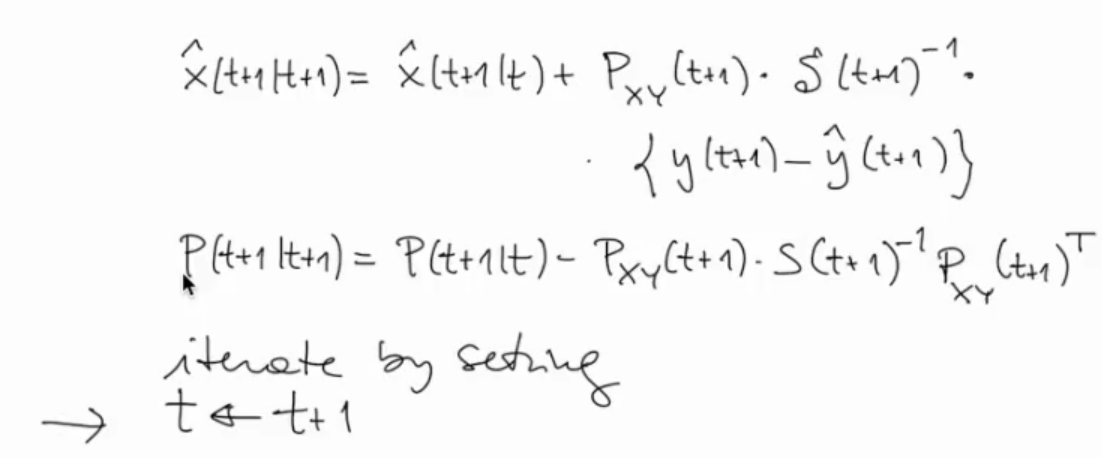 x̂(t+1|t+1) = x̂(t+1|t) + P_XY(t+1) · S(t+1)⁻¹ ·
· { y(t+1) – ŷ(t+1) }
P(t+1|t+1) = P(t+1|t) – P_XY(t+1) · S(t+1)⁻¹ P_XY(t+1)ᵀ
iterate by setting
→ t ← t+1